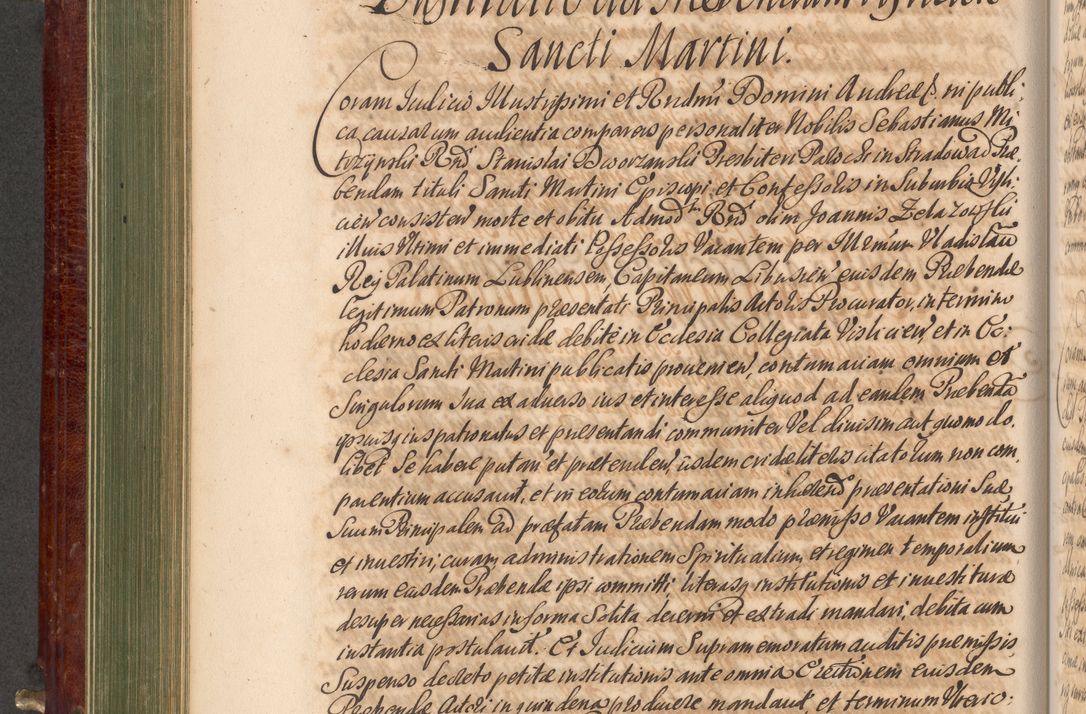 Sancti Martini.
Coram Iudicio Illustrissimi et Rndmi Domini Andreae &c. in publi:
ca causarum audientia comparens personaliter Nobilis Sebastianus Mi
trzynski Rnd Stanislai Dworzanski Presbiteri Paroch in Stradow ad Prae
bendam tituli Sancti Martini Episcopi et Confessoris in Suburbio Visli:
cien consisten morte et obitu Admod Rnd olim Joannis Zelazowski
illius Ultimi et immediati Possessoris Vacantem per Illmum Vladislaum
Rey Palatinum Lublinensem, Capitaneum Libusien eiusdem Praebendae
legitimum Patronum praesentati Principalis Actoris Procurator, in termino
hodierno ex literis cridae debite in Ecclesia Collegiata Vislicien, et in Ec:
clesia Sancti Martini publicatis provenien, contumaciam omnium et
Singulorum Sua ex adverso ius et interesse aliquod ad eandem Praebendam
ipsiusq ius patronatus et praesentandi communiter Vel divisim aut quomodo,
libet Se habere putan et praetenden, iisdem cridae literis citatorum non com,
parentium accusavit, et in eorum contumaciam inhaerend praesentationi Suae
Suum Principalem ad praefatam Praebendam modo praemisso Vacantem institui
et investiri, curam administrationem Spiritualium et regimen temporalium
rerum eiusdem Praebendae ipsi committi, literasq institutionis et investiturae
desuper necessarias in forma Solita decerni et extradi mandari, debita cum
instantia postulavit. Et Iudicium Supramemoratum auditis praemissis
Suspenso decreto petitae institutionis ante omnia Erectionem eiusdem
Praebendae Actori in quindena producere mandavit, et terminum Uberio: